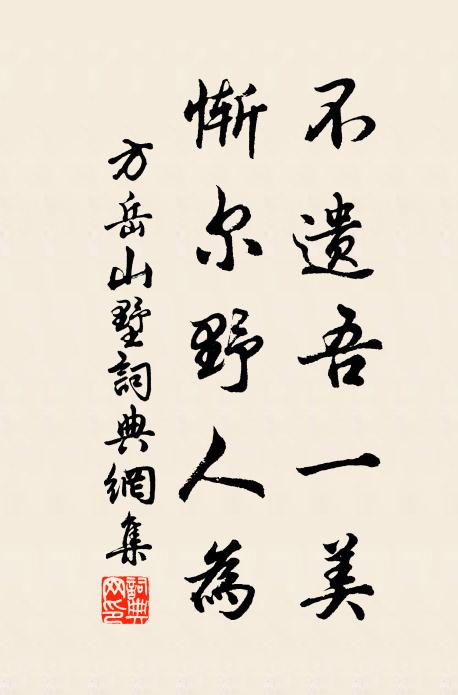 不遺吾一美
慚尔野人為
方岳山墅詞典網集
詞典網印